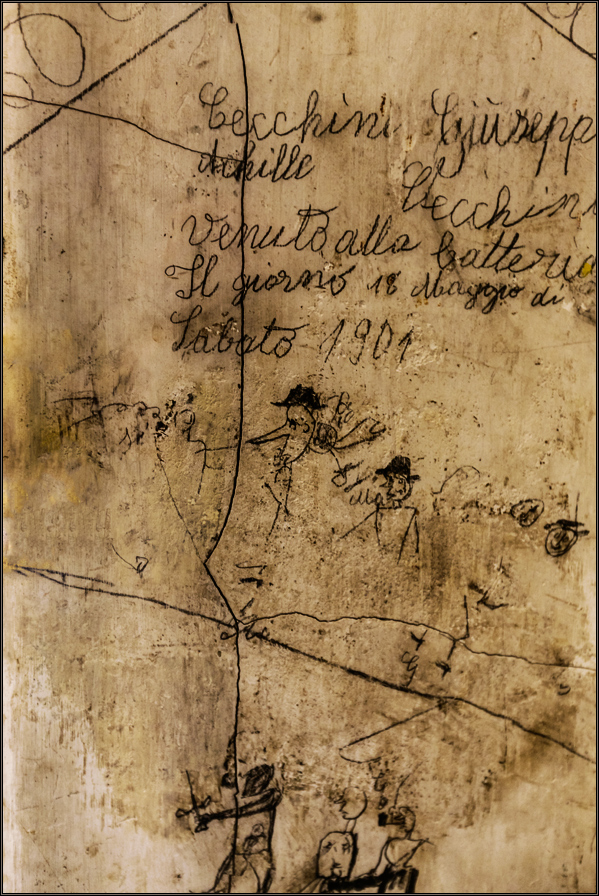 Cecchini Giusepp
Achille
Cecchini
Venuto alla batteria
Il giorno 18 Maggio di
Sabato 1901